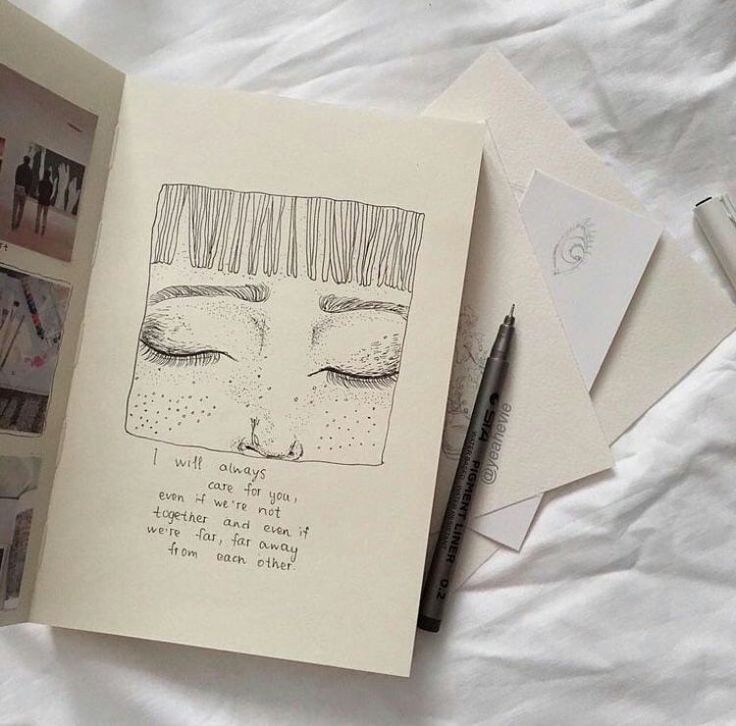 I will always
care for you,
even if we're not
together and even if
we're far, far away
from each other.
STA PIGMENT LINER 0.2
@yeahevie